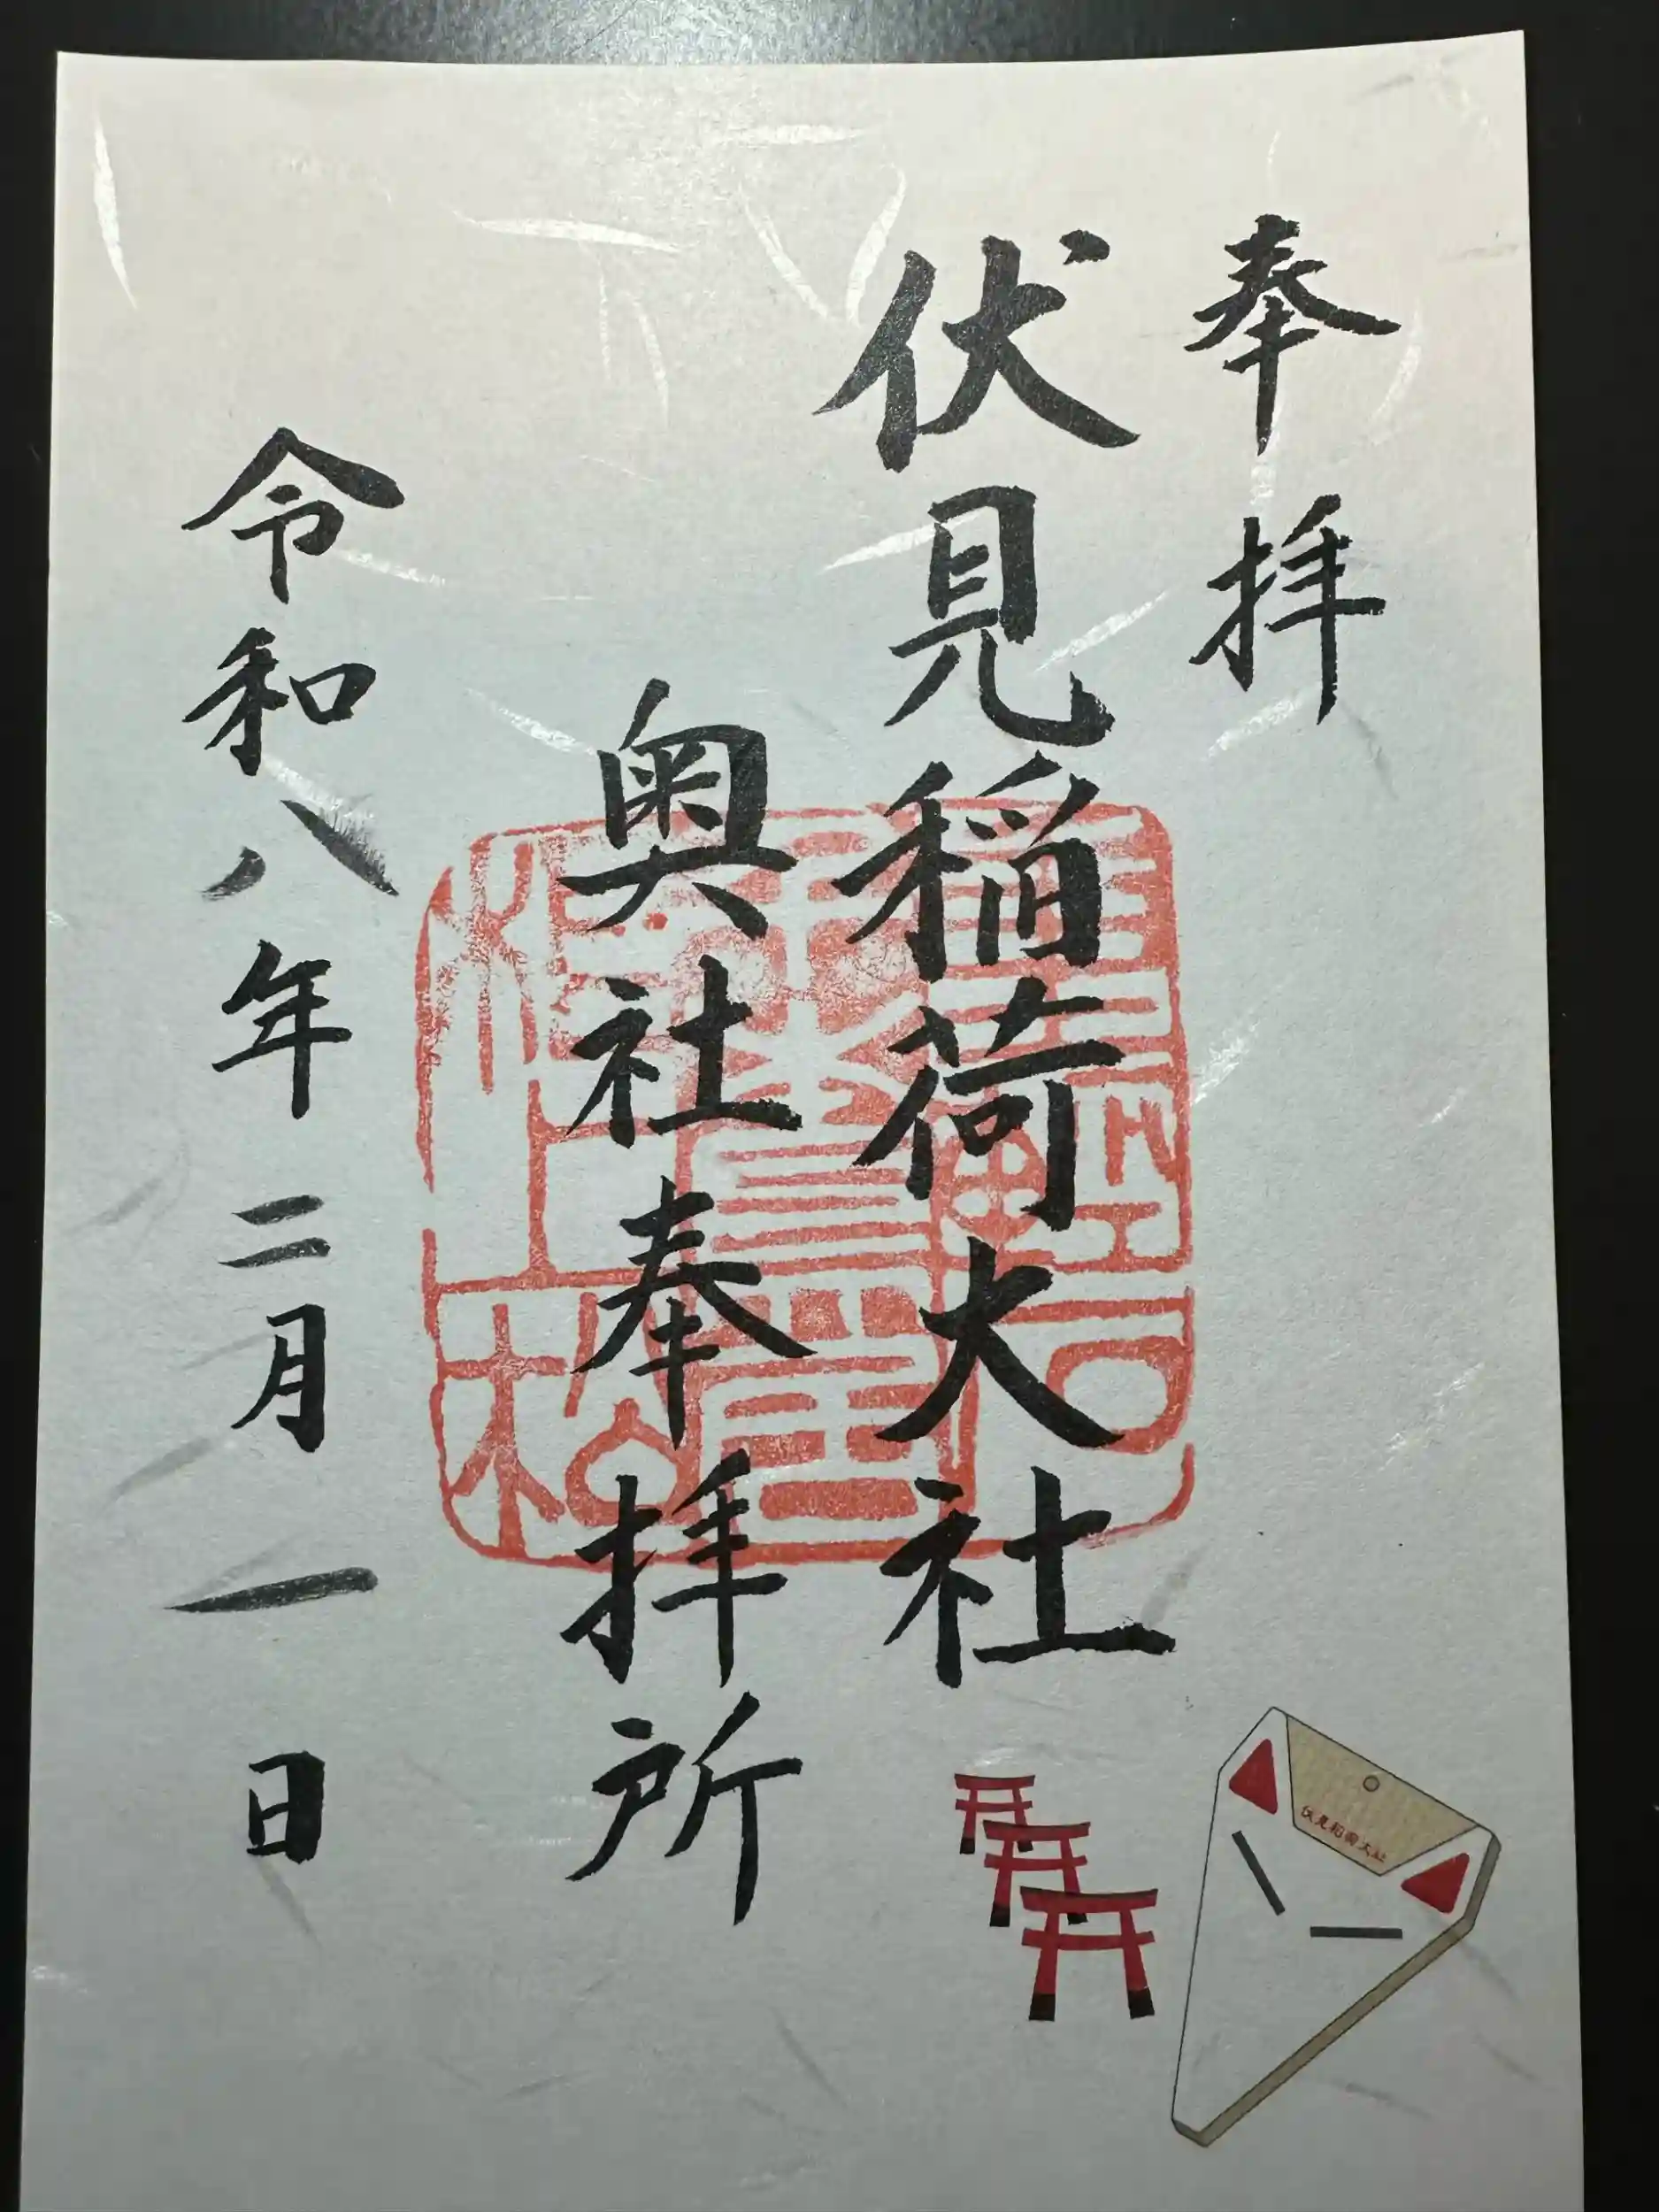 奉拝
伏見稲荷大社
奥社奉拝所
令和八年二月一日
伏見稲荷大社